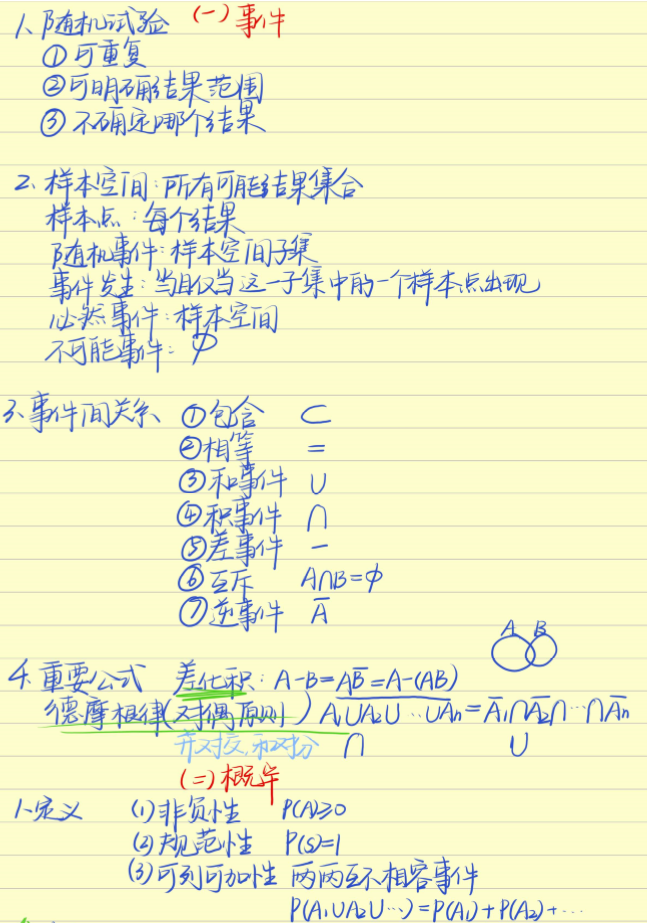 (一)事件
1、随机试验
①可重复
②可明确结果范围
③不确定哪个结果
2、样本空间:所有可能结果集合
样本点:每个结果
随机事件:样本空间子集
事件发生:当且仅当这一子集中的一个样本点出现
必然事件:样本空间
不可能事件:∅
3、事件间关系 ①包含 ⊂
②相等 =
③和事件 ∪
④积事件 ∩
⑤差事件 −
⑥互斥 A∩B=∅
⑦逆事件 A̅
A B
4.重要公式 差化积:A-B=AB̅=A-(AB)
德摩根律(对偶原则) A₁∪A₂∪…∪A̅n̅=A̅₁∩A̅₂∩…∩A̅n
并对交,和对分 ∩ ∪
(二)概率
1.定义 (1)非负性 P(A)≥0
(2)规范性 P(S)=1
(3)可列可加性 两两互不相容事件
P(A₁∪A₂∪…)=P(A₁)+P(A₂)+…